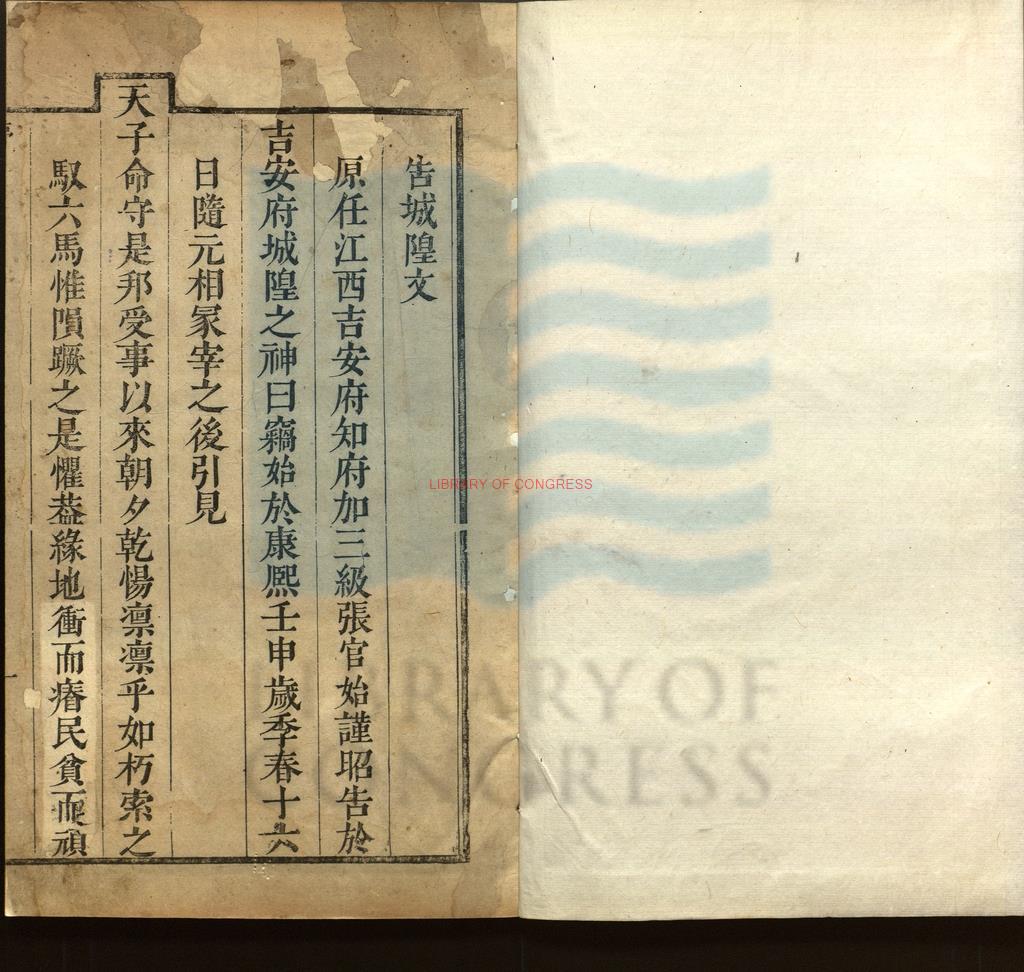 告城隍文
原任江西吉安府知府加三級張官始謹昭告於
吉安府城隍之神曰竊始於康熙壬申歲季春十六
日隨元相冢宰之後引見
天子命守是邦受事以來朝夕乾惕凛凛乎如朽索之
馭六馬惟隕蹶之是懼葢緣地衝而瘠民貧而頑
LIBRARY OF CONGRESS
RARY OF
NGRESS